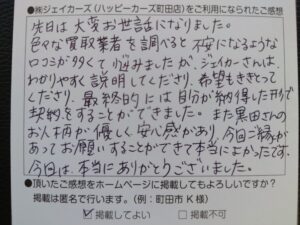 ●㈱ジェイカーズ（ハッピーカーズ町田店）をご利用になられたご感想
先日は大変お世話になりました。
色々な買取業者を調べると不安になるような
口コミが多くて悩みましたが、ジェイカーさんは
わかりやすく説明してくださり、希望もきとって
くださり、最終的には自分が納得した形で
契約をすることができました。また黒田さんの
お人柄が優しく安心感があり、今回ご縁が
あってお願いすることができて本当によかったです。
今回は、本当にありがとうございました。
●頂いたご感想をホームページに掲載してもよろしいですか？
掲載は匿名で行います。（例：町田市 K 様）
☑掲載してよい　□掲載不可